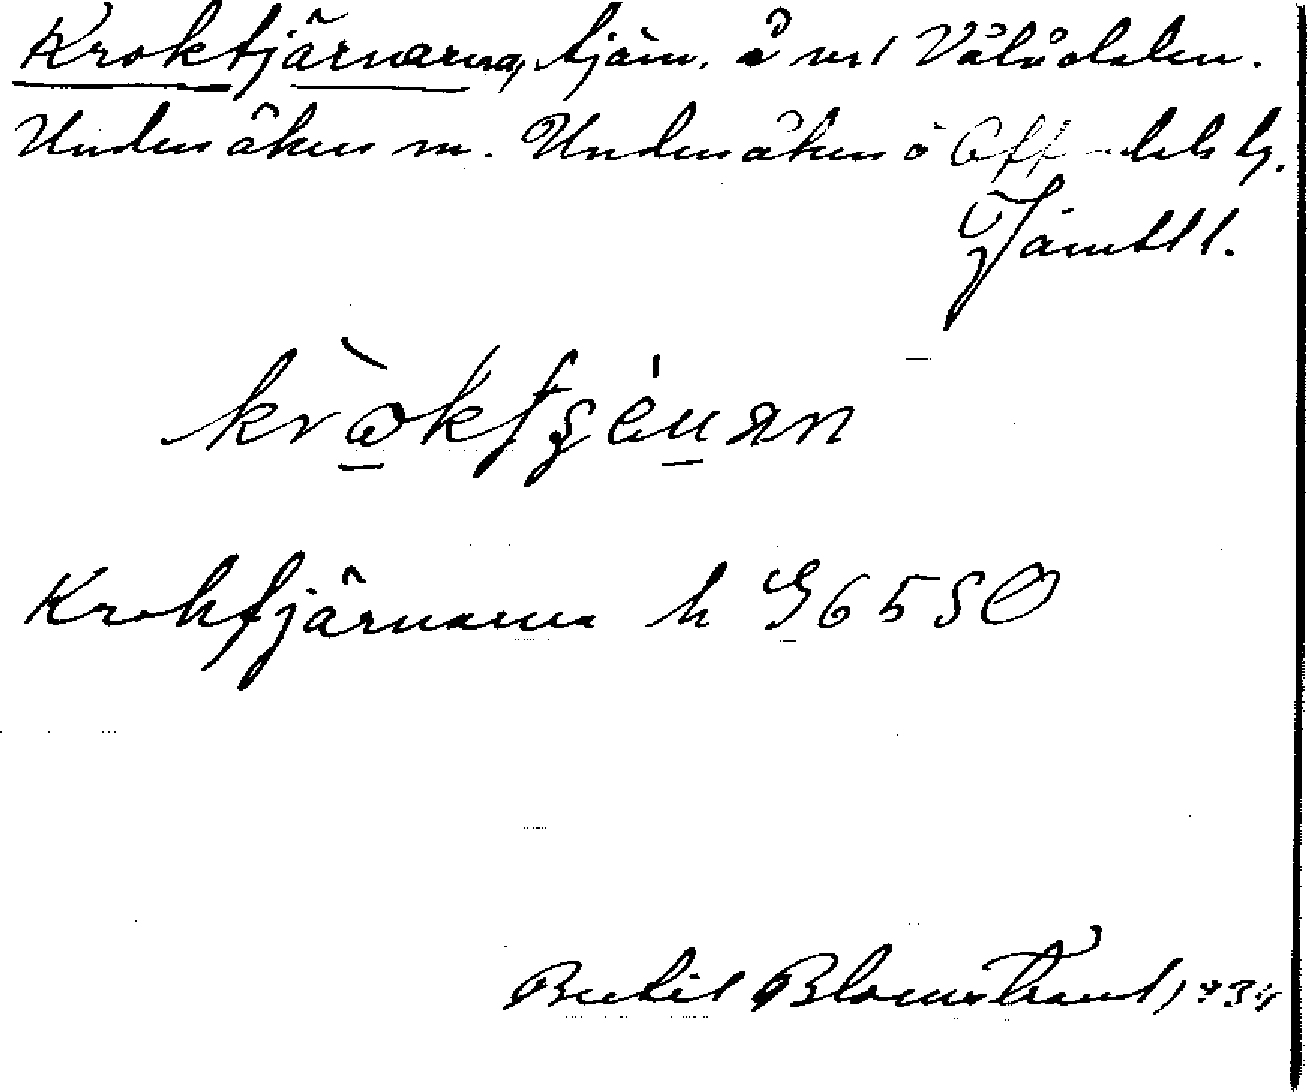 Kroktjärnarna, tjärn. å nv1 Vålådalen.
Undersåkers sn. Undersåkers o Offerdals tg.
Jämtl l.
Kroktjärnarna k G6550
Bertil Blomstrand, 1934